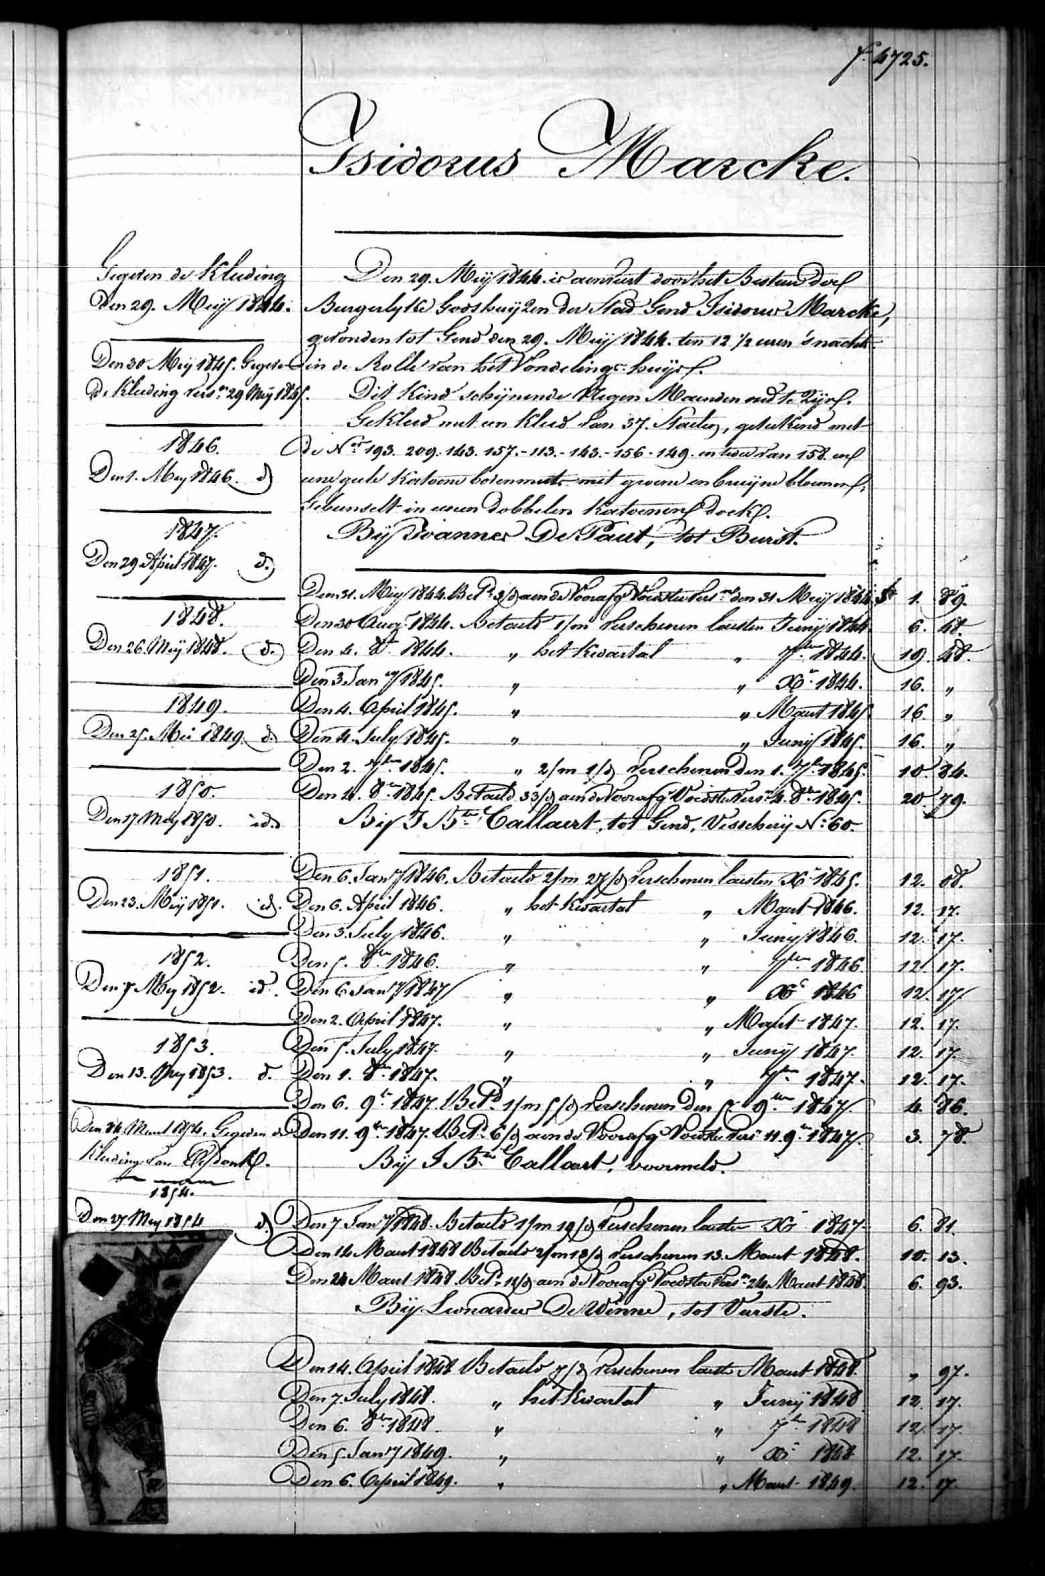 f.º 4725.
Isidorus Marcke.
Gegeven de Kleeding
Den 29. Meij 1844.
Den 30 Meij 1845. Gegeven
de Kleeding vers.en 29 Meij 1845.
1846.
Den 1. Mey 1846. d.
1847.
Den 29 April 1847. d.
1848.
Den 26. Meij 1848. d.
1849.
Den 25. Mei 1849. d.
1850.
Den 27 Mey 1850. id.
1851.
Den 23. Meij 1851. id.
1852.
Den 7 Mey 1852. id.
1853.
Den 13. Mey 1853. d.
Den 24. Maert 1854. Gegeven de
Kleeding van
1854.
Den 27 Mey 1854 d.
Den 29. Meij 1844. is aenveert door het Bestuer der
Burgerlyke Godshuyzen der Stad Gend Isidorus Marcke,
gevonden tot Gend den 29. Meij 1844. ten 12 1/2 uren 's nachts
in de Rolle van het Vondelings-huys.
Dit Kind schijnende Negen Maenden oud te zijn.
Gekleed met een Kleed van 37. Stucken, geteekend met
de N.os 193. 209. 143. 157.- 113.- 143.- 156.- 149. en twee van 158. en
eene gele Katoene bovenmuts met groene en bruijne bloemen,
Gebunselt in eenen dobbelen Katoenen doek.
Bij Joannes De Paut, tot Burst.
Den 31. Meij 1844. Bet.d 3/d aen de Vooraf.g Voedster vers.en den 31 Meij 1844. fr 1. 89.
Den 30 Aug.t 1844. Betaeld 1/m verschenen laesten Junij 1844. 6. 48.
Den 4. 8.br 1844. " het Kwartal " 7.ber 1844. 19. 48.
Den 3. Jan.y 1845. " " X.r 1844. 16. "
Den 4. April 1845. " " Maert 1845. 16. "
Den 4. July 1845. " " Junij 1845. 16. "
Den 2. 7.ber 1845. " 2/m 1/d verschenen den 1. 7.br 1845. 10. 84.
Den 4. 8.br 1845. Betaeld 33/d aen de Vooraf.g Voedster vers.en 4. 8.br 1845. 20 79.
Bij J. B.te Callaert, tot Gend, Visscherij N.º 60.
Den 6. Jan.y 1846. Betaeld 2/m 27/d verschenen laesten X.r 1845. 12. 08.
Den 6. April 1846. " het Kwartal " Maert 1846. 12. 17.
Den 3. July 1846. " " Junij 1846. 12. 17.
Den 5. 8.br 1846. " " 7.ber 1846 12 17.
Den 6 Jan.y 1847 " " X.r 1846 12. 17
Den 2. April 1847. " " Maert 1847. 12. 17.
Den 5. July 1847. " " Junij 1847. 12. 17.
Den 1. 8.br 1847. " " 7.ber 1847. 12. 17.
Den 6. 9.br 1847. Bet.d 1/m 5/d verschenen den 5 9.ber 1847 4. 86.
Den 11. 9.ber 1847. Bet.d 6/d aen de Vooraf.g Voedster vers. 11. 9.br 1847. 3. 78.
Bij J. B.te Callaert, voormeld.
Den 7 Jan.y 1848. Betaeld 1/m 19/d verschenen laesten X.r 1847. 6. 81.
Den 14 Maert 1848 Betaeld 2/m 13/d verschenen 13. Maert 1848. 10. 13.
Den 24 Maert 1848. Bet.d 11/d aen de Vooraf.g Voedster vers.en 24 Maert 1848 6. 93.
Bij Leonardus De Winne, tot Vurste.
Den 14. April 1848 Betaeld 7/d verschenen laesten Maert 1848. " 97.
Den 7. July 1848. " het Kwartal " Junij 1848 12. 17.
Den 6. 8.br 1848. " " 7.br 1848 12. 17.
Den 5 Jan.y 1849. " " X.r 1848 12. 17.
Den 6. April 1849. " " Maert 1849. 12. 17.